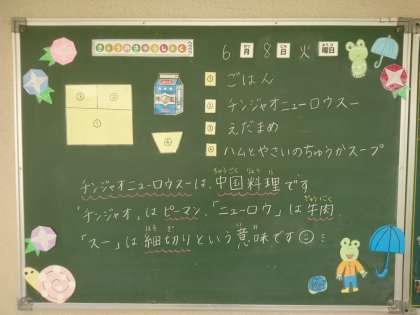 きょうのきゅうしょく
6月8日火曜日
① ごはん
② チンジャオニューロウスー
③ えだまめ
④ ハムとやさいのちゅうかスープ
チンジャオニューロウスーは、中国料理です
「チンジャオ」はピーマン、「ニューロウ」は牛肉、
「スー」は細切りという意味です☺